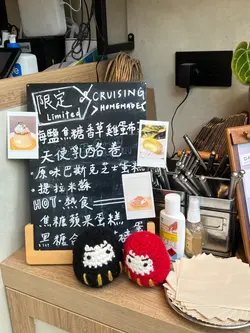 限定
Limited
CRUISING
HOMEMADE
海鹽焦糖香草雞蛋布
天使乳酪卷
・原味巴斯克芝士蛋糕
・提拉米穌
HOT・熱食
焦糖蘋果蛋糕
黑糖